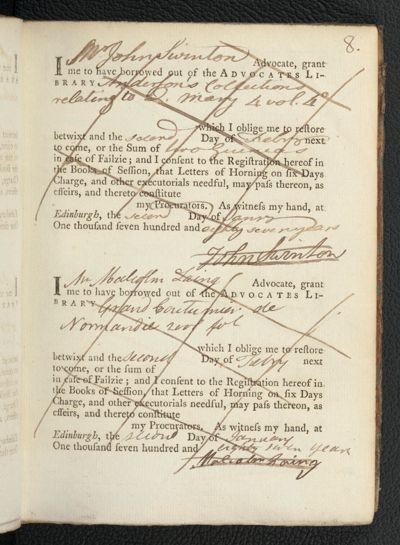 8.
I Mr John Swinton Advocate, grant
me to have borrowed out of the ADVOCATES LI-
BRARY Anderson's Collections
relating to Q. Mary 4 vol. 4º
which I oblige me to restore
betwixt and the second Day of Febry next
to come, or the Sum of two Guineas
in case of Failzie; and I consent to the Registration hereof in
the Books of Session, that Letters of Horning on six Days
Charge, and other executorials needful, may pass thereon, as
effeirs, and thereto constitute
my Procurators. As witness my hand, at
Edinburgh, the second Day of Janry
One thousand seven hundred and eighty seven years
John Swinton
I Mr Malcolm Laing Advocate, grant
me to have borrowed out of the ADVOCATES LI-
BRARY Grand Coutumier de
Normandie fol
which I oblige me to restore
betwixt and the second Day of Febry next
to come, or the sum of
in case of Failzie; and I consent to the Registration hereof in
the Books of Session, that Letters of Horning on six Days
Charge, and other executorials needful, may pass thereon, as
effeirs, and thereto constitute
my Procurators. As witness my hand, at
Edinburgh, the second Day of January
One thousand seven hundred and eighty seven years
Malcolm Laing